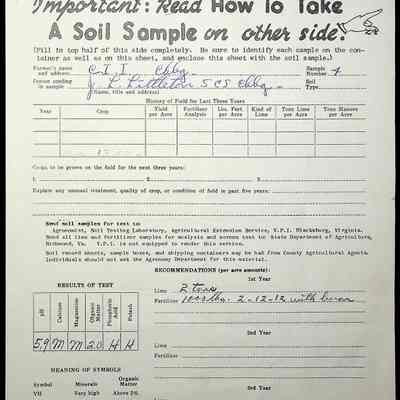 Important: Read How To Take
A Soil Sample on other side!
(Fill in top half of this side completely. Be sure to identify each sample on the con-
tainer as well as on this sheet, and enclose this sheet with the soil sample.)
Farmer's name and address. C. I. I. Cbbg. Sample Number 4
Person sending in sample J. L. Littleton SCS Cbbg. Soil Type
(Name, title and address)
History of Field for Last Three Years
Year Crop Yield per Acre Fertilizer Analysis Lbs. Fert. per Acre Kind of Lime Tons Lime per Acre Tons Manure per Acre
Crops to be grown on the field for the next three years:
1 2 3
Explain any unusual treatment, quality of crop, or condition of field in past five years:
Send soil samples for test to
Agronomist, Soil Testing Laboratory, Agricultural Extension Service, V.P.I. Blacksburg, Virginia.
Send all lime and fertilizer samples for analysis and screen test to State Department of Agriculture,
Richmond, Va. V.P.I. is not equipped to render this service.
Soil record sheets, sample boxes, and shipping containers may be had from County Agricultural Agents.
Individuals should not ask the Agronomy Department for this material.
RECOMMENDATIONS (per acre amounts):
1st Year
RESULTS OF TEST
Lime 2 tons
Fertilizer 1000 lbs. 2-12-12 with boron
pH Calcium Magnesium Organic Matter Phosphoric Acid Potash
2nd Year
5.9 M M 2.0 H H
Lime
Fertilizer
MEANING OF SYMBOLS
Symbol Minerals Organic Matter
3rd Year
VH Very high Above 5%
Lime